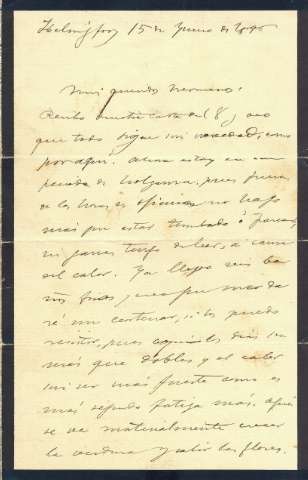 Helsingfors 15 de Junio de 1898
Mi querido hermano:
Recibo vuestra carta del 8 y veo
que todo sigue sin novedad, como
por aquí. Ahora estoy en un
periodo de holganza, pues fuera
de las horas de oficina no hago
más que estar tumbado ó
ni ganas tengo de leer, á causa
del calor. Ya llevo seis ba
ños fríos, y creo que me da
ré un centenar, si los puedo
resistir, pues aquí los días son
más que dobles y el calor
sin ser más fuerte como es
más seguido fatiga más. Aquí
se ve materialmente crecer
la verdura y abrir las flores.